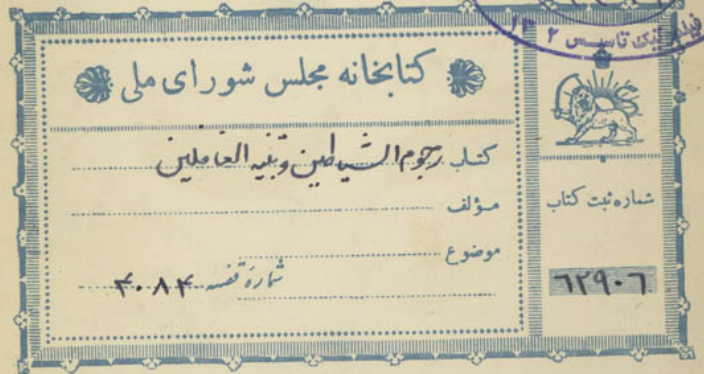 تاسیس ۱۳۰۲
کتابخانه مجلس شورای ملی
کتاب رجوم الشیاطین و تنبیه الغافلین
مؤلف
موضوع
شماره قفسه ۴۰۸۴
شماره ثبت کتاب
۶۲۹۰۶